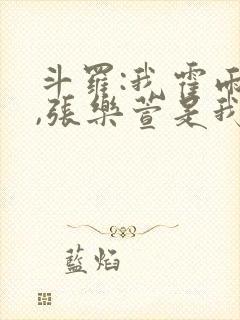 斗羅:我霍雨
,張樂萱是我
藍焰